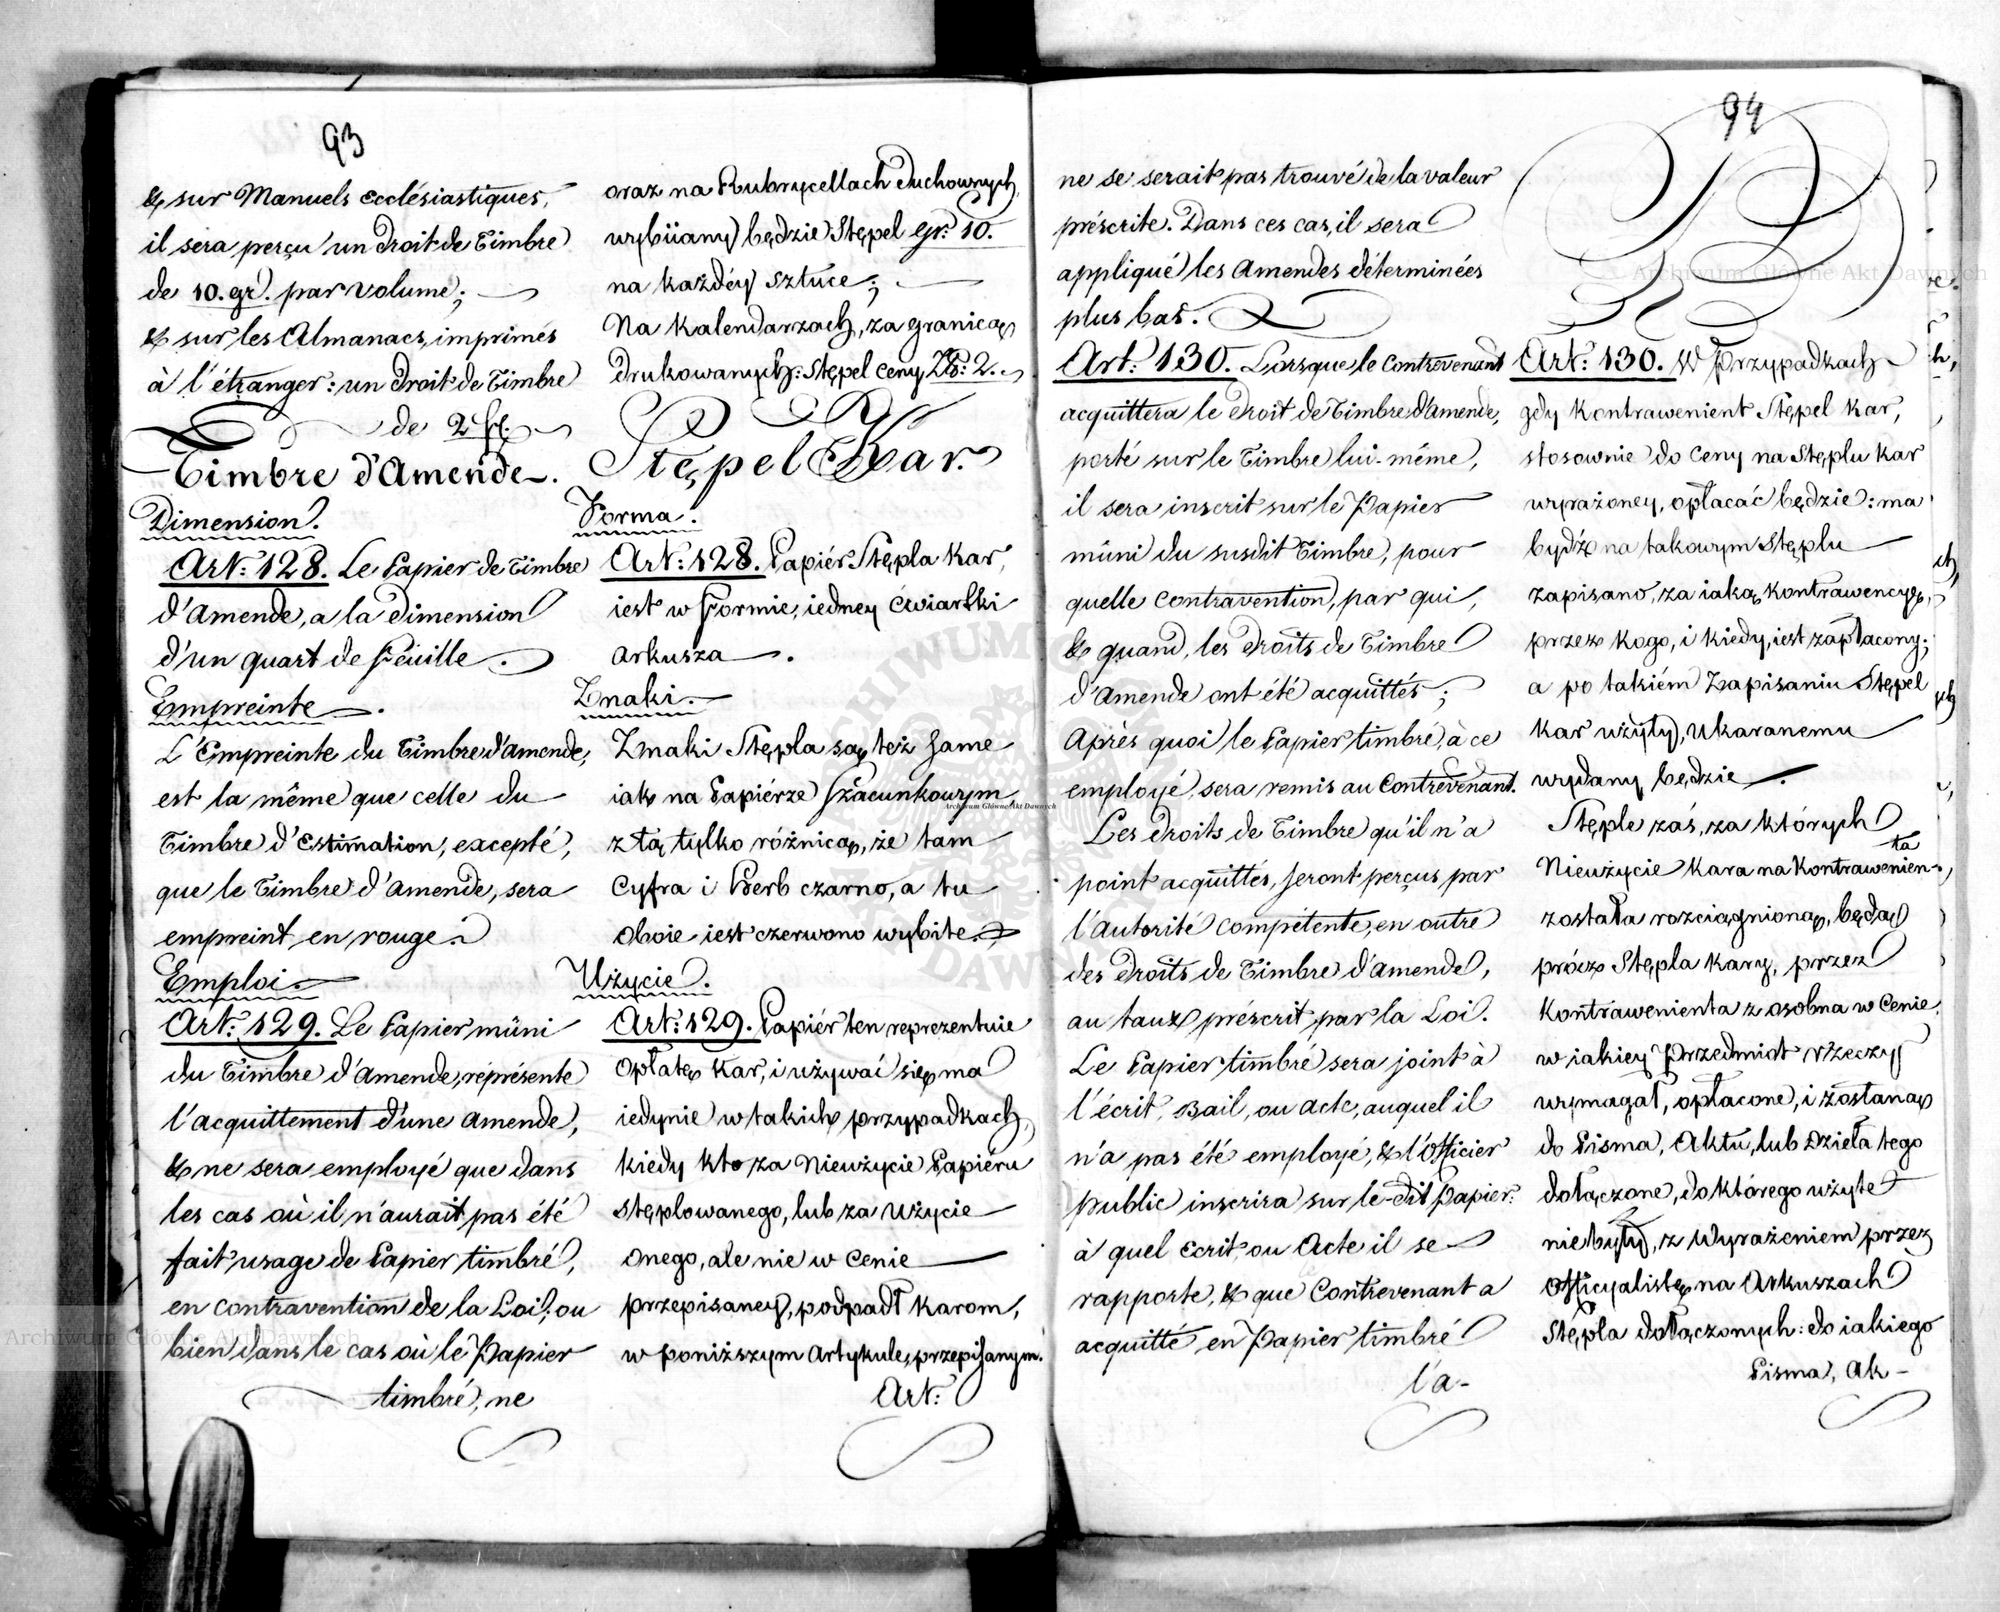 93
& sur Manuels ecclésiastiques,
il sera perçu un droit de Timbre
de 10. gr. par volume;
& sur les Almanacs, imprimés
à l'étranger: un droit de Timbre
de 2 fl.
Timbre d'Amende.
Dimension.
Art: 128. Le Papier de Timbre
d'Amende, a la dimension
d'un quart de feüille.
Empreinte.
L'Empreinte du Timbre d'amende,
est la même que celle du
Timbre d'Estimation, excepté,
que le Timbre d'amende, sera
empreint en rouge.
Emploi.
Art: 129. Le Papier müni
du Timbre d'amende, représente
l'acquittement d'une amende,
& ne sera employé que dans
les cas où il n'aurait pas été
fait usage de Papier timbré,
en contravention de la Loi, ou
bien dans le cas où le Papier
timbré, ne
oraz na Rubrycellach duchownych,
wybiiany będzie Stępel gr: 10.
na każdéy sztuce;
Na Kalendarzach, za granicą
drukowanych: Stępel ceny Zł: 2.
Stępel Kar.
Forma.
Art: 128. Papiér Stępla kar,
iest w formie, iedney cwiartki
arkusza.
Znaki.
Znaki Stępla są też same
iak na Papiérze szacunkowym,
z tą tylko różnicą, że tam
Cyfra i Herb czarno, a tu
oboie iest czerwono wybite.
Użycie.
Art: 129. Papiér ten reprezentuie
Opłatę kar, i używać się ma
iedynie w takich przypadkach,
kiedy kto za Nieużycie Papiéru
stęplowanego, lub za użycie
onego, ale nie w cenie
przepisaney, podpadł karom,
w poniższym artykule, przepisanym.
Art:
94
ne se serait pas trouvé de la valeur
préscrite. Dans ces cas, il sera
appliqué les amendes déterminées
plus bas.
Art: 130. Lorsque le Contrevenant
acquittera le droit de Timbre d'amende,
porté sur le Timbre lui-même,
il sera inscrit sur le Papier
müni du susdit Timbre, pour
quelle contravention, par qui,
& quand, les droits de Timbre
d'amende ont été acquittés;
Après quoi le Papier timbré, à ce
employé, sera remis au Contrevenant.
Les droits de Timbre qu'il n'a
point acquittés, seront perçus par
l'autorité compétente, en outre
des droits de Timbre d'amende,
au taux préscrit par la Loi.
Le Papier timbré sera joint à
l'écrit, Bail, ou acte, auquel il
n'a pas été employé, & l'Officier
public inscrira sur le-dit Papier:
à quel Ecrit ou Acte il se
rapporte, & que Contrevenant a
acquitté en Papier timbré
l'a-
Art: 130. W Przypadkach
gdy Kontrawenient Stępel kar,
stosownie do Ceny na Stęplu kar
wyrażoney, opłacać będzie: ma
bydź na takowym Stęplu
zapisano, za iaką kontrawencyę,
przez kogo, i kiedy, iest zapłacony;
a po takiém Zapisaniu Stępel
kar użyty, Ukaranemu
wydany będzie.
Stęple zaś, za których
Nieużycie kara na Kontrawenien-
ta
została rozciągnioną, będą
prócz Stępla kary, przez
Kontrawenienta z osobna w Cenie,
w iakiey Przedmiot rzeczy
wymagał, opłacone, i zostaną
do Pisma, Aktu, lub Dzieła tego
dołączone, do którego użyte
nie były, z Wyrażeniem przez
Officyalistę na Arkuszach
Stępla dołączonych: do iakiego
Pisma, Ak-
Archiwum Główne Akt Dawnych